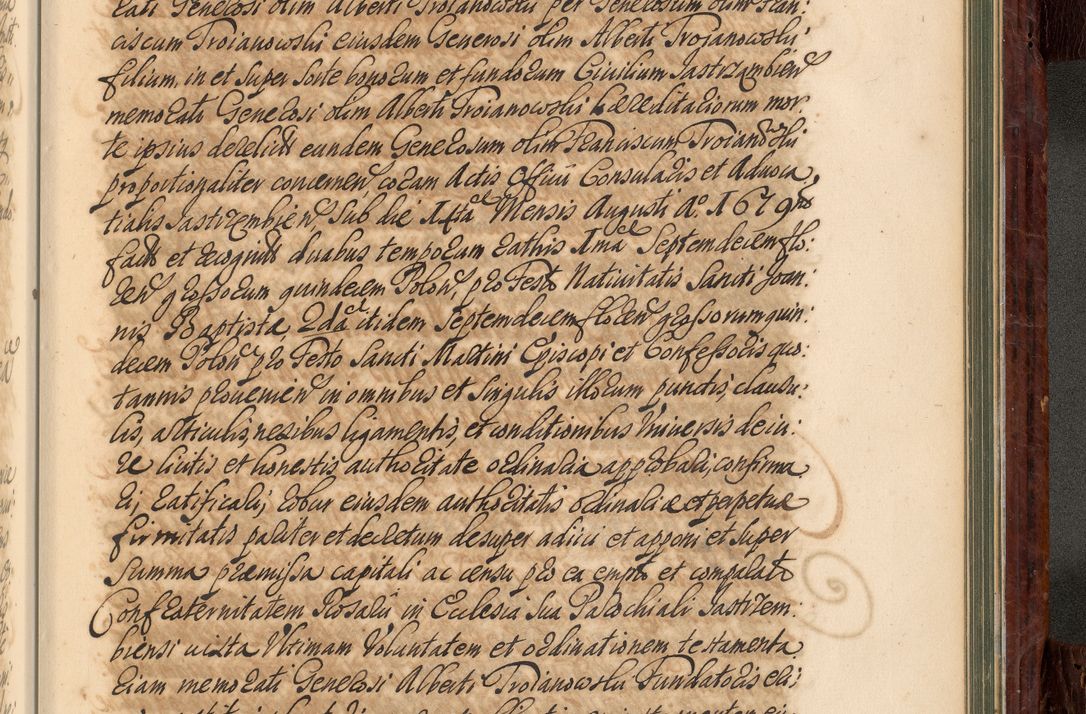 rati Generosi olim Alberti Troianowski per Generosum olim Fran:
ciscum Troianowski eiusdem Generosi olim Alberti Trojanowski
filium, in et super sorte bonorum et fundorum Civilium Jastrzambien
memorati Generosi olim Alberti Troianowski hæreditariorum mor
te ipsius derelict eundem Generosum olim Franciscum Troianowski
proportionaliter concernen coram Actis Officii Consularis et Advoca,
tialis Jastrzembien Sub die 1sta Mensis Augusti Ao 1679no
fact et recognit duabus temporum rathis 1ma Septemdecem flo:
ren grossorum quindecem Polon, pro Festo Nativitatis Sancti Joan:
nis Baptistæ 2da itidem Septemdecem floren grossorum quin:
decem Polon pro Festo Sancti Martini Episcopi et Confessoris quo:
tannis provenien in omnibus et singulis illorum punctis, clausu:
lis, articulis, nexibus ligamentis, et conditionibus Universis de iu:
re licitis et honestis authoritate ordinaria approbari, confirma
ri, ratificari, robur eiusdem authoritatis ordinariæ et perpetuæ
firmitatis pariter et decretum desuper adiici et apponi et super
Summa præmissa capitali ac censu pro ea empt et comparat
Confraternitatem Rosarii in Ecclesia sua Parochiali Jastrzem:
biensi iuxta Ultimam Voluntatem et ordinationem testamenta
riam memorati Generosi Alberti Troianowski Fundatoris eri;